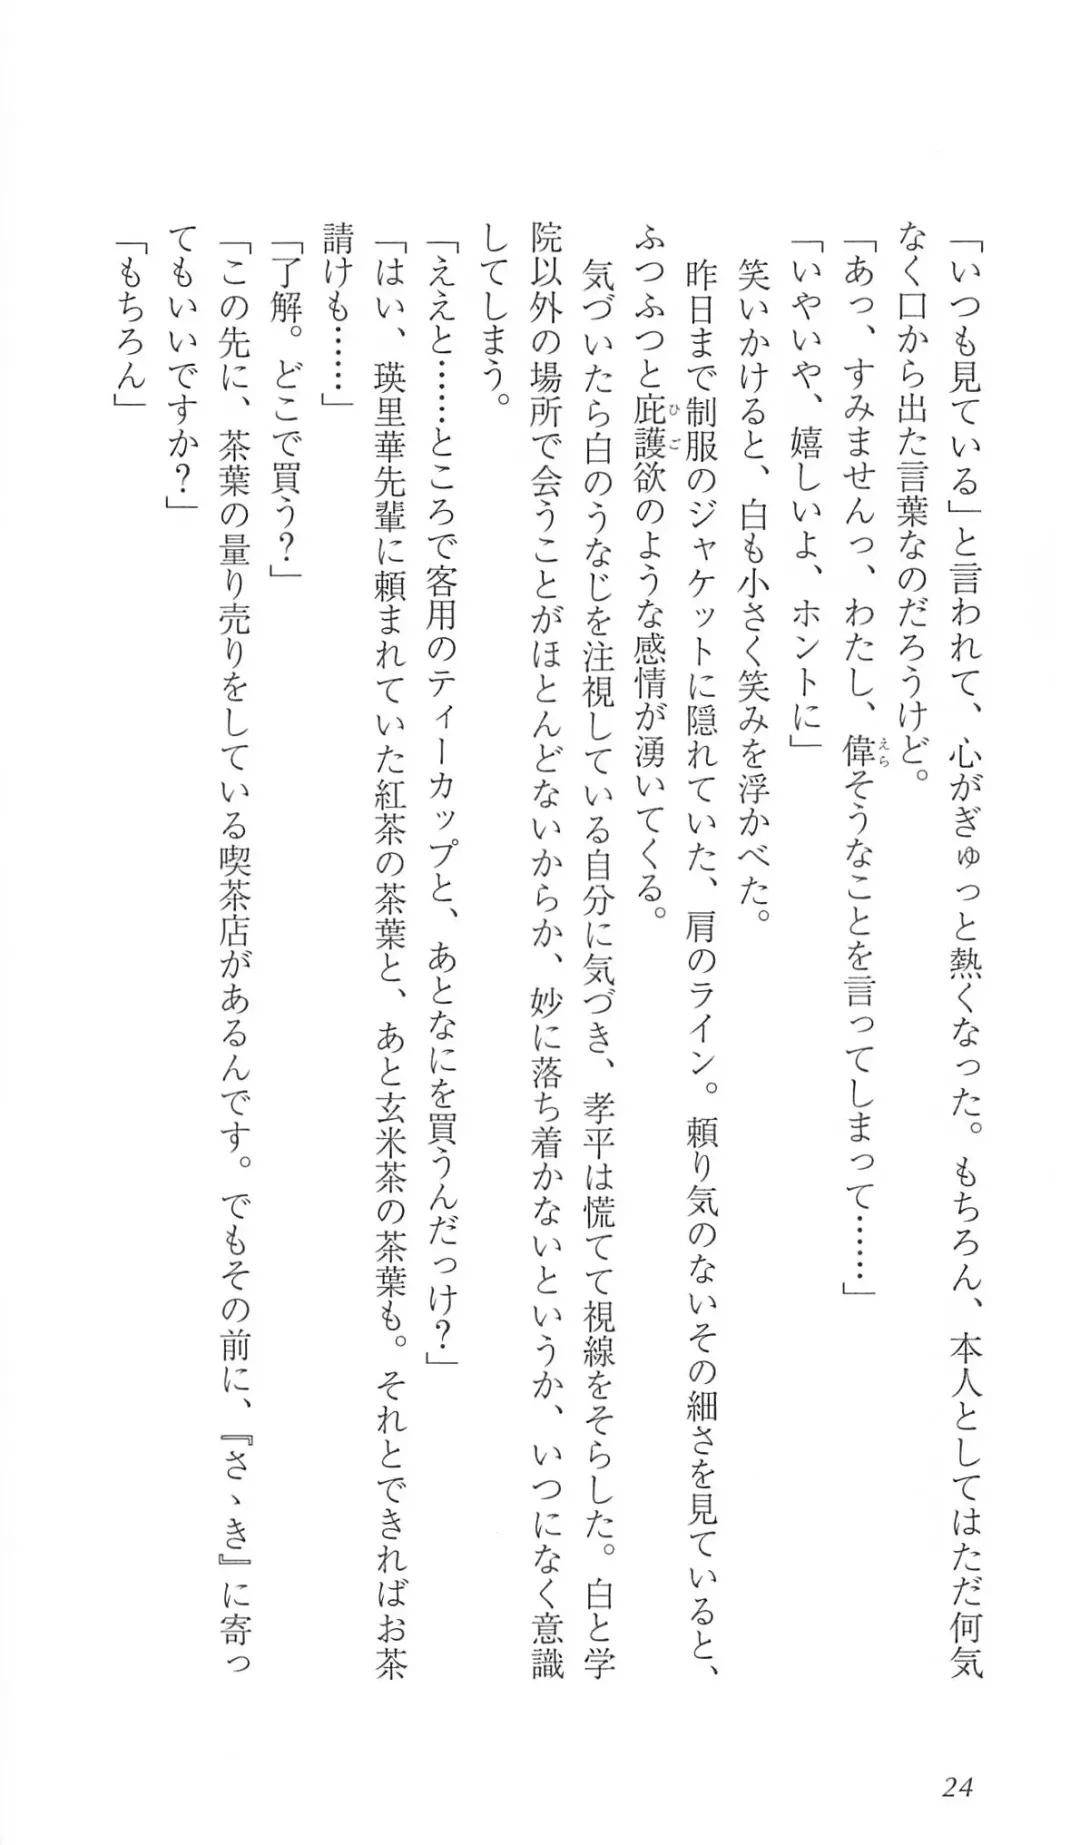 「いつも見ている」と言われて、心がぎゅっと熱くなった。もちろん、本人としてはただ何気
なく口から出た言葉なのだろうけど。
「あっ、すみませんっ、わたし、偉そうなことを言ってしまって……」
「いやいや、嬉しいよ、ホントに」
　笑いかけると、白も小さく笑みを浮かべた。
　昨日まで制服のジャケットに隠れていた、肩のライン。頼り気のないその細さを見ていると、
ふつふつと庇護欲のような感情が湧いてくる。
　気づいたら白のうなじを注視している自分に気づき、孝平は慌てて視線をそらした。白と学
院以外の場所で会うことがほとんどないからか、妙に落ち着かないというか、いつになく意識
してしまう。
「ええと……ところで客用のティーカップと、あとなにを買うんだっけ？」
「はい、瑛里華先輩に頼まれていた紅茶の茶葉と、あと玄米茶の茶葉も。それとできればお茶
請けも……」
「了解。どこで買う？」
「この先に、茶葉の量り売りをしている喫茶店があるんです。でもその前に、『さゝき』に寄っ
てもいいですか？」
「もちろん」
えら
ひご
24